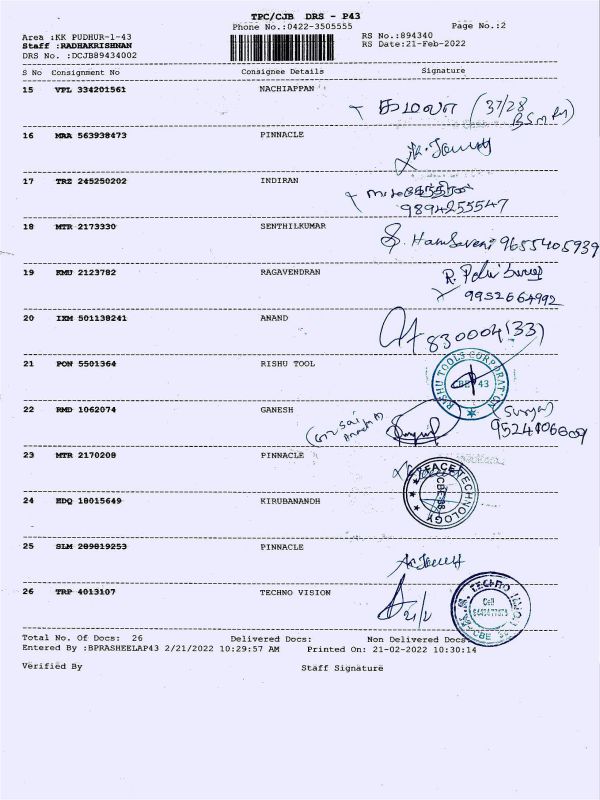 TPC/CJB DRS - P43
Phone No.:0422-3505555
Page No.:2
Area :KK PUDHUR-1-43
RS No.:894340
Staff :RADHAKRISHNAN
RS Date:21-Feb-2022
DRS No. :DCJB89434002
S No Consignment No Consignee Details Signature
15 VPL 334201561 NACHIAPPAN
கமலா (37/28
16 MAA 563938473 PINNACLE
17 TRZ 245250202 INDIRAN
9894255547
18 MTR 2173330 SENTHILKUMAR
S. Hamsaveni 9655405939
19 KMU 2123782 RAGAVENDRAN
R.
9952664992
20 IXM 501138241 ANAND
830004(33)
21 PON 5501364 RISHU TOOL
RISHU TOOLS CORPORATION
22 RMD 1062074 GANESH
(Surya)
Sai
23 MTR 2170208 PINNACLE
24 EDQ 18015649 KIRUBANANDH
FACE TECHNOLOGY
25 SLM 289819253 PINNACLE
26 TRP 4013107 TECHNO VISION
21/2
TECHNO
Cell
CBE
Total No. Of Docs: 26 Delivered Docs: Non Delivered Docs:
Entered By :BPRASHEELAP43 2/21/2022 10:29:57 AM Printed On: 21-02-2022 10:30:14
Verified By Staff Signature